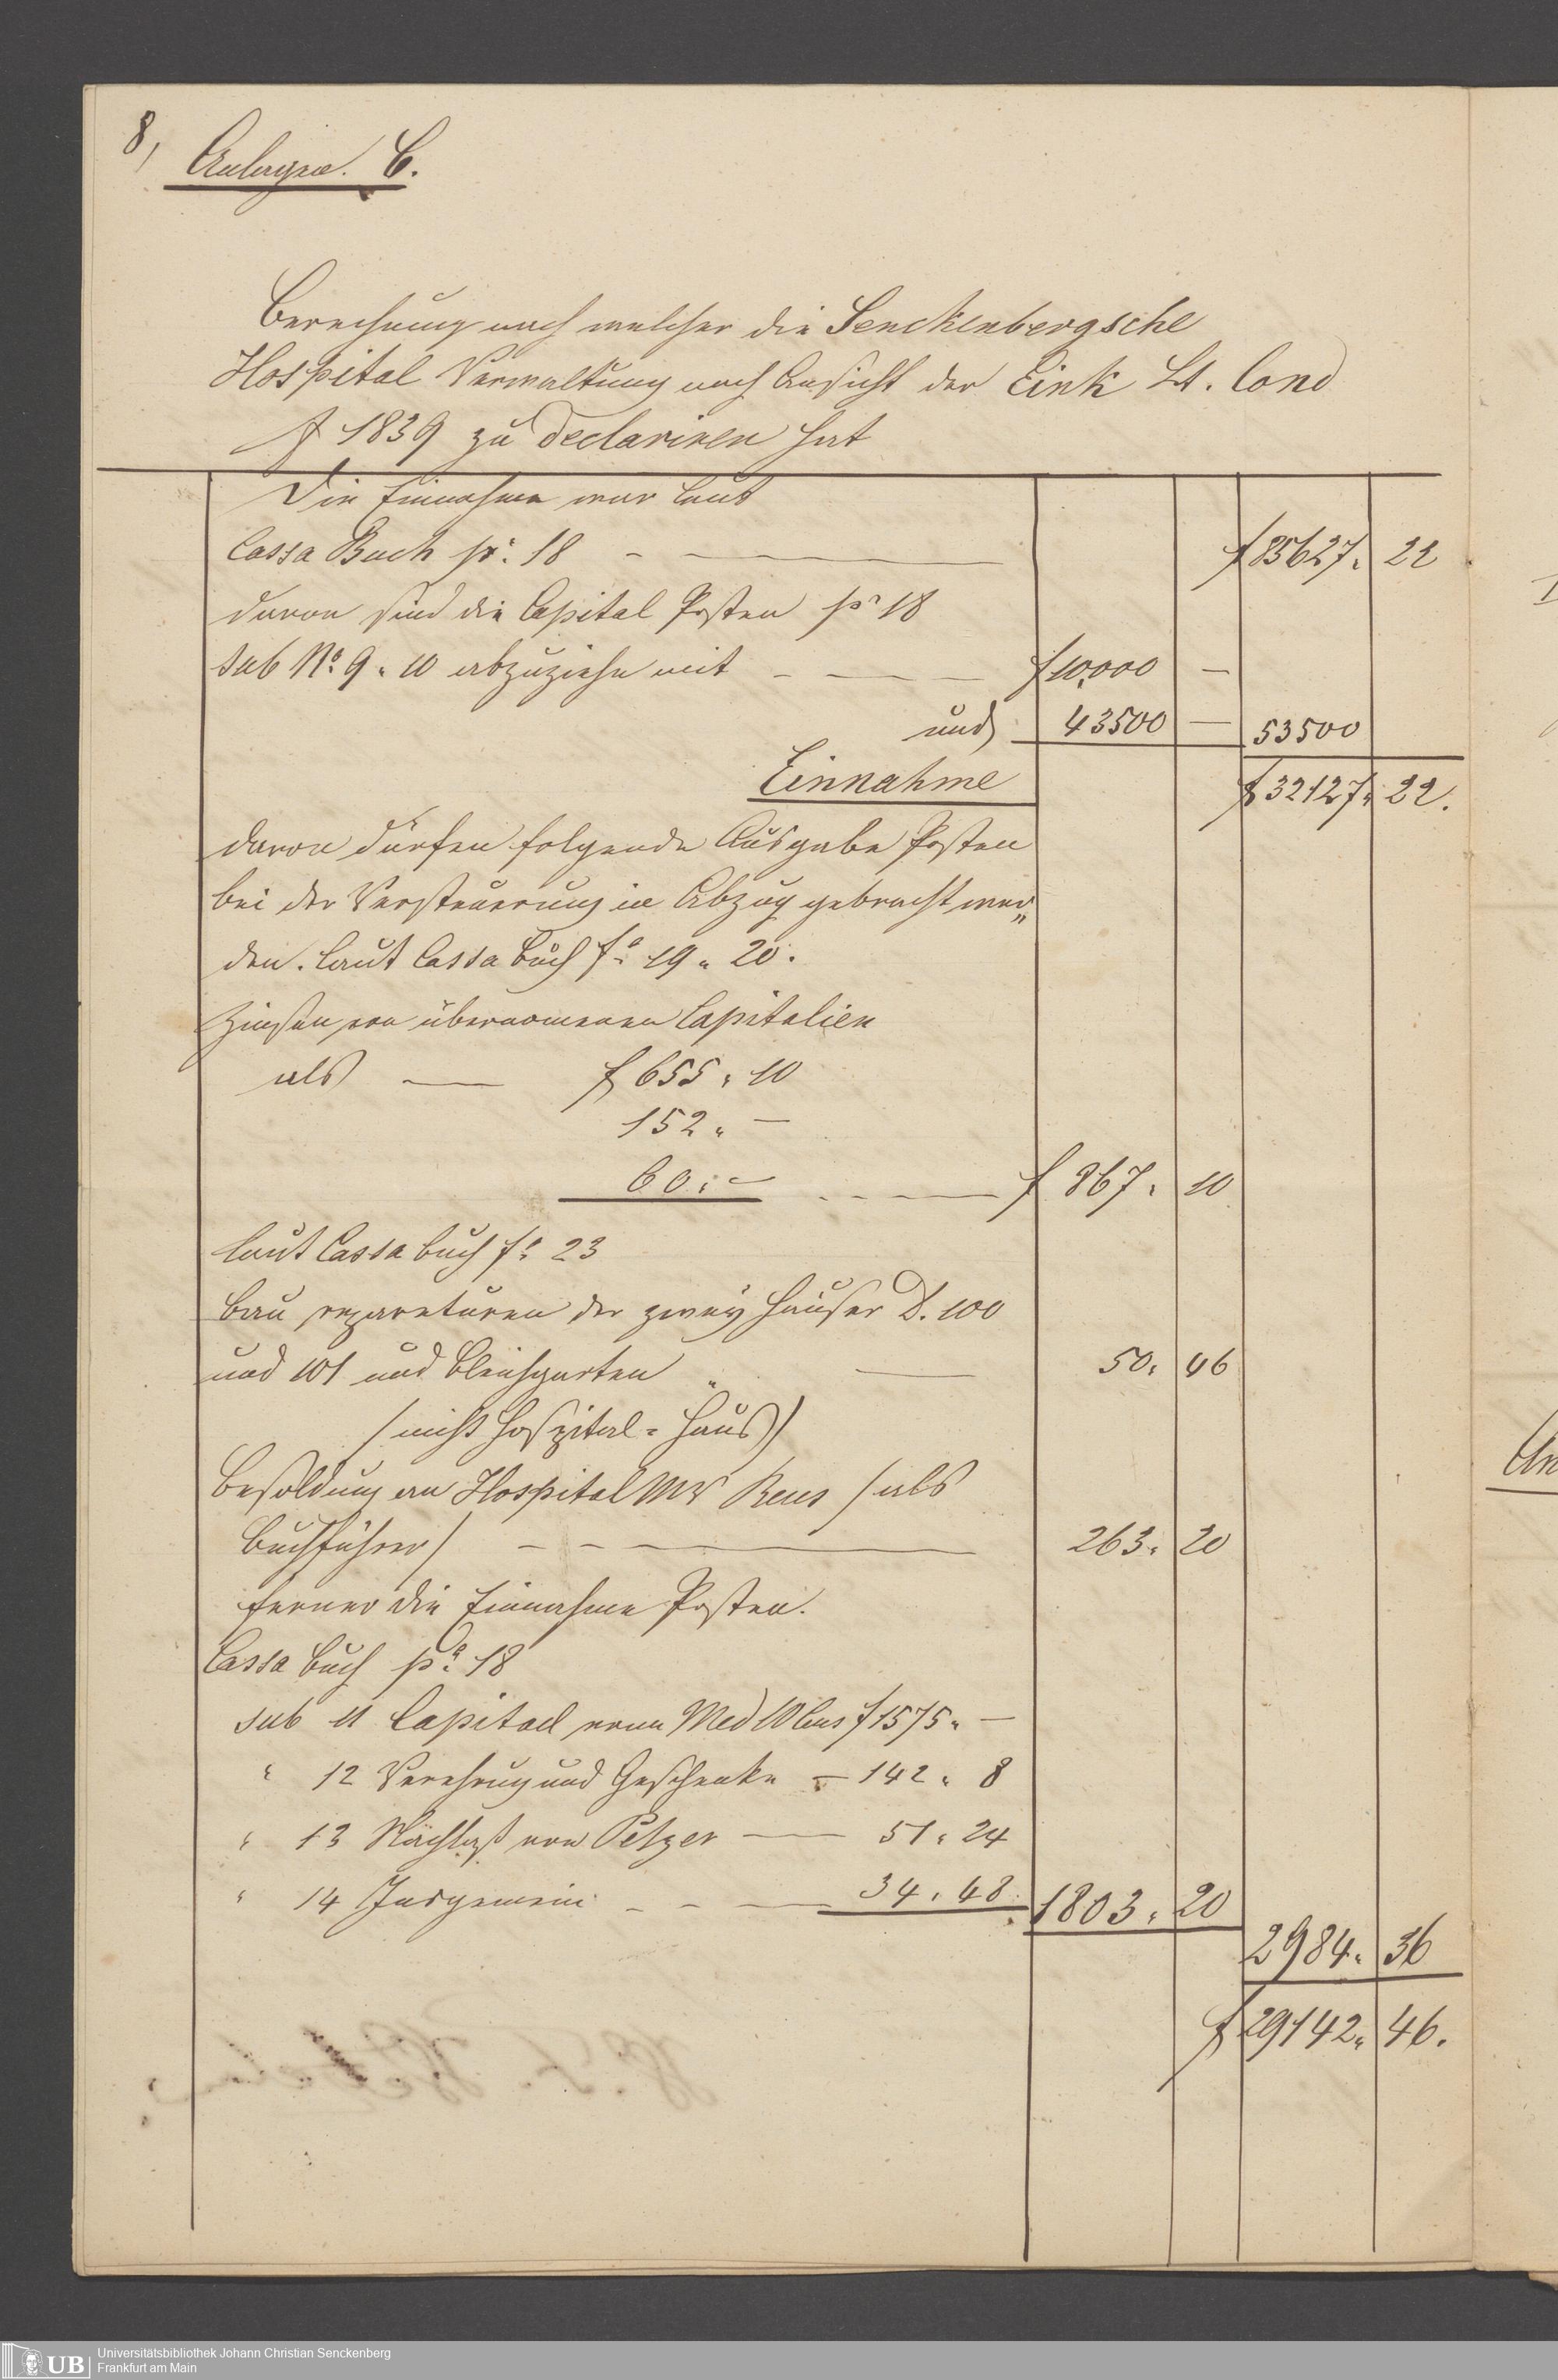 8,
Anlage. C.
Berechnung nach welcher die Senckenbergsche
Hospital Verwaltung nach Ansicht der Eink St. Cond
1839 zu declariren hat
Die Einnahme war laut
Cassa Buch pa. 18 f 85627. 22
davon sind die Capital Posten pa 18
sub No. 9. 10 abzuziehn mit f 10,000 —
und 43500 — 53500
Einnahme f 32127. 22.
davon dürfen folgende Ausgabe Posten
bei der Versteuerung in Abzug gebracht wer„
den. laut Cassa buch fo. 19. 20.
Zinsen von übernomenen Capitalien
als — f 655. 10
152. —
60. — f 867. 10
laut Cassa buch fo. 23
Bau reparaturen der zwey Häuser D. 100
und 101 und Bleichgarten 50. 46
(nicht Hospital-Haus)
Besoldung an Hospital Mstr Reus (als
Buchführer) 263. 20
ferner die Einnahme Posten.
Cassa buch pa. 18
sub 11 Capital vom Med f 1575. —
" 12 Verehrung und Geschenke — 142. 8
" 13 Nachlaß von Petzer — 51. 24
" 14 Insgemein 34. 48. 1803. 20
2984. 36
f 29142. 46.
UB
Universitätsbibliothek Johann Christian Senckenberg
Frankfurt am Main